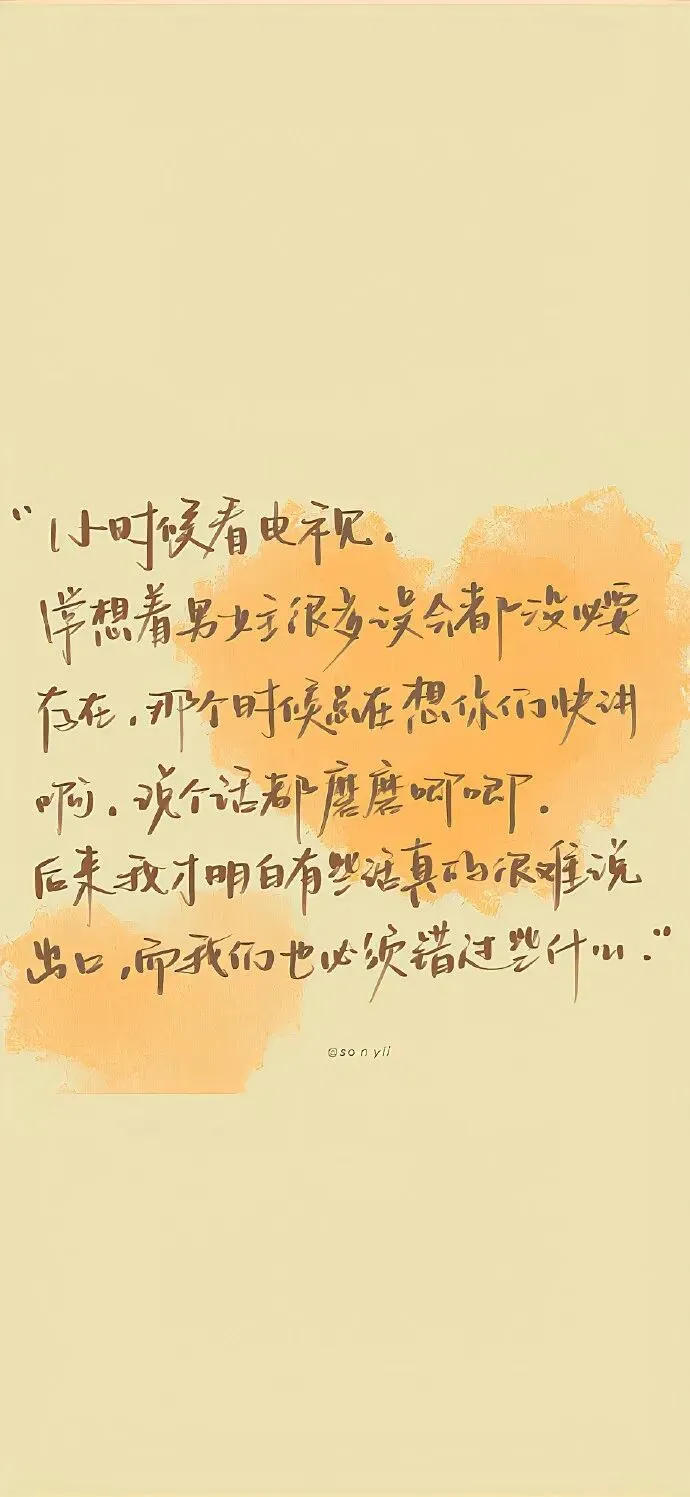 “小时候看电视.
常想着男女主很多误会都没必要
存在,那个时候总在想你们快讲
啊.说个话都磨磨唧唧.
后来我才明白有些话真的很难说
出口,而我们也必须错过些什么.”
@sonyli